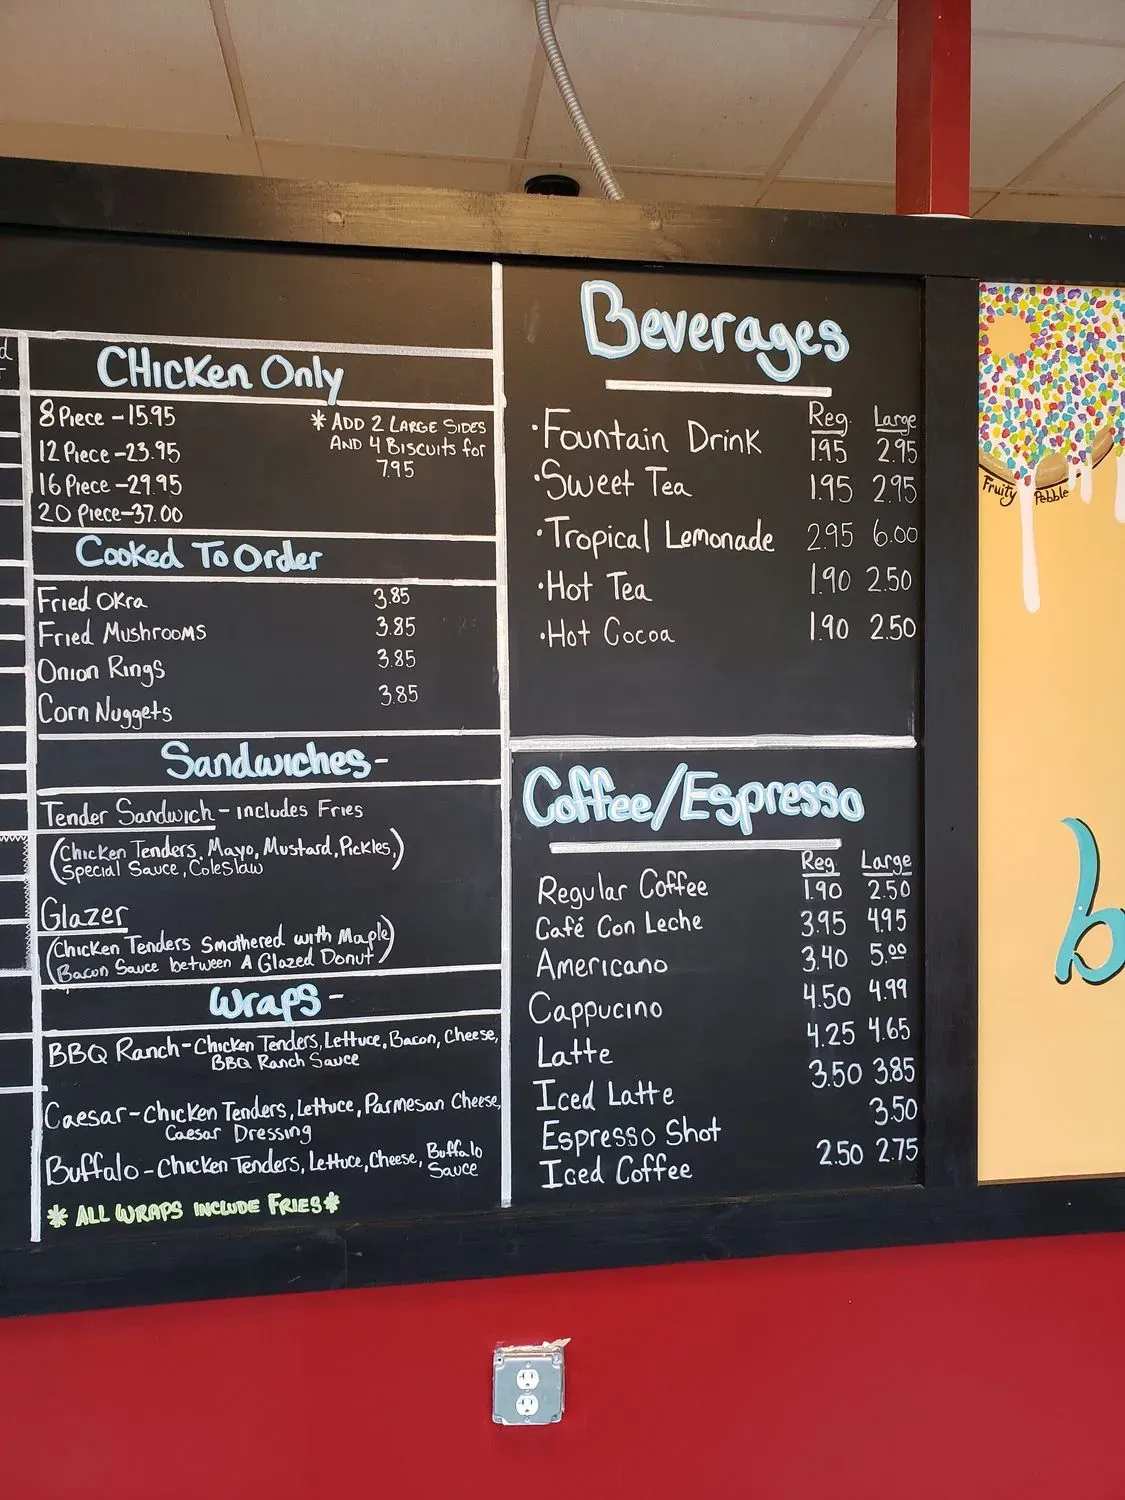 d
CHICKEN ONLY
8 Piece - 15.95
12 Piece - 23.95
16 Piece - 29.95
20 Piece - 37.00
* ADD 2 LARGE SIDES
AND 4 BISCUITS for
7.95
Cooked To Order
Fried Okra 3.85
Fried Mushrooms 3.85
Onion Rings 3.85
Corn Nuggets 3.85
Sandwiches -
Tender Sandwich - includes Fries
(Chicken Tenders, Mayo, Mustard, Pickles,)
Special Sauce, Coleslaw
Glazer
(Chicken Tenders Smothered with Maple)
Bacon Sauce between A Glazed Donut
Wraps -
BBQ Ranch - Chicken Tenders, Lettuce, Bacon, Cheese,
BBQ Ranch Sauce
Caesar - Chicken Tenders, Lettuce, Parmesan Cheese,
Caesar Dressing
Buffalo - Chicken Tenders, Lettuce, Cheese, Buffalo
Sauce
* ALL WRAPS INCLUDE FRIES *
Beverages
Reg. Large
· Fountain Drink 1.95 2.95
· Sweet Tea 1.95 2.95
· Tropical Lemonade 2.95 6.00
· Hot Tea 1.90 2.50
· Hot Cocoa 1.90 2.50
Coffee/Espresso
Reg. Large
Regular Coffee 1.90 2.50
Café Con Leche 3.95 4.95
Americano 3.40 5.00
Cappucino 4.50 4.99
Latte 4.25 4.65
Iced Latte 3.50 3.85
Espresso Shot 3.50
Iced Coffee 2.50 2.75
Fruity Pebble
b